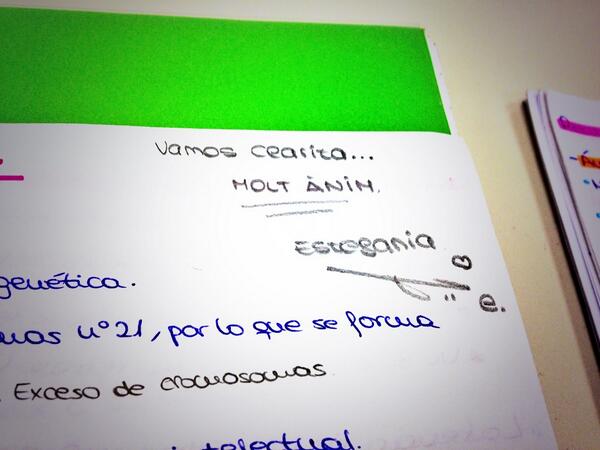 Vamos cearita...
MOLT ÀNIM.
Estefania
e.
genética.
mas nº 21, por lo que se forma
Exceso de cromosomas
intelectual.